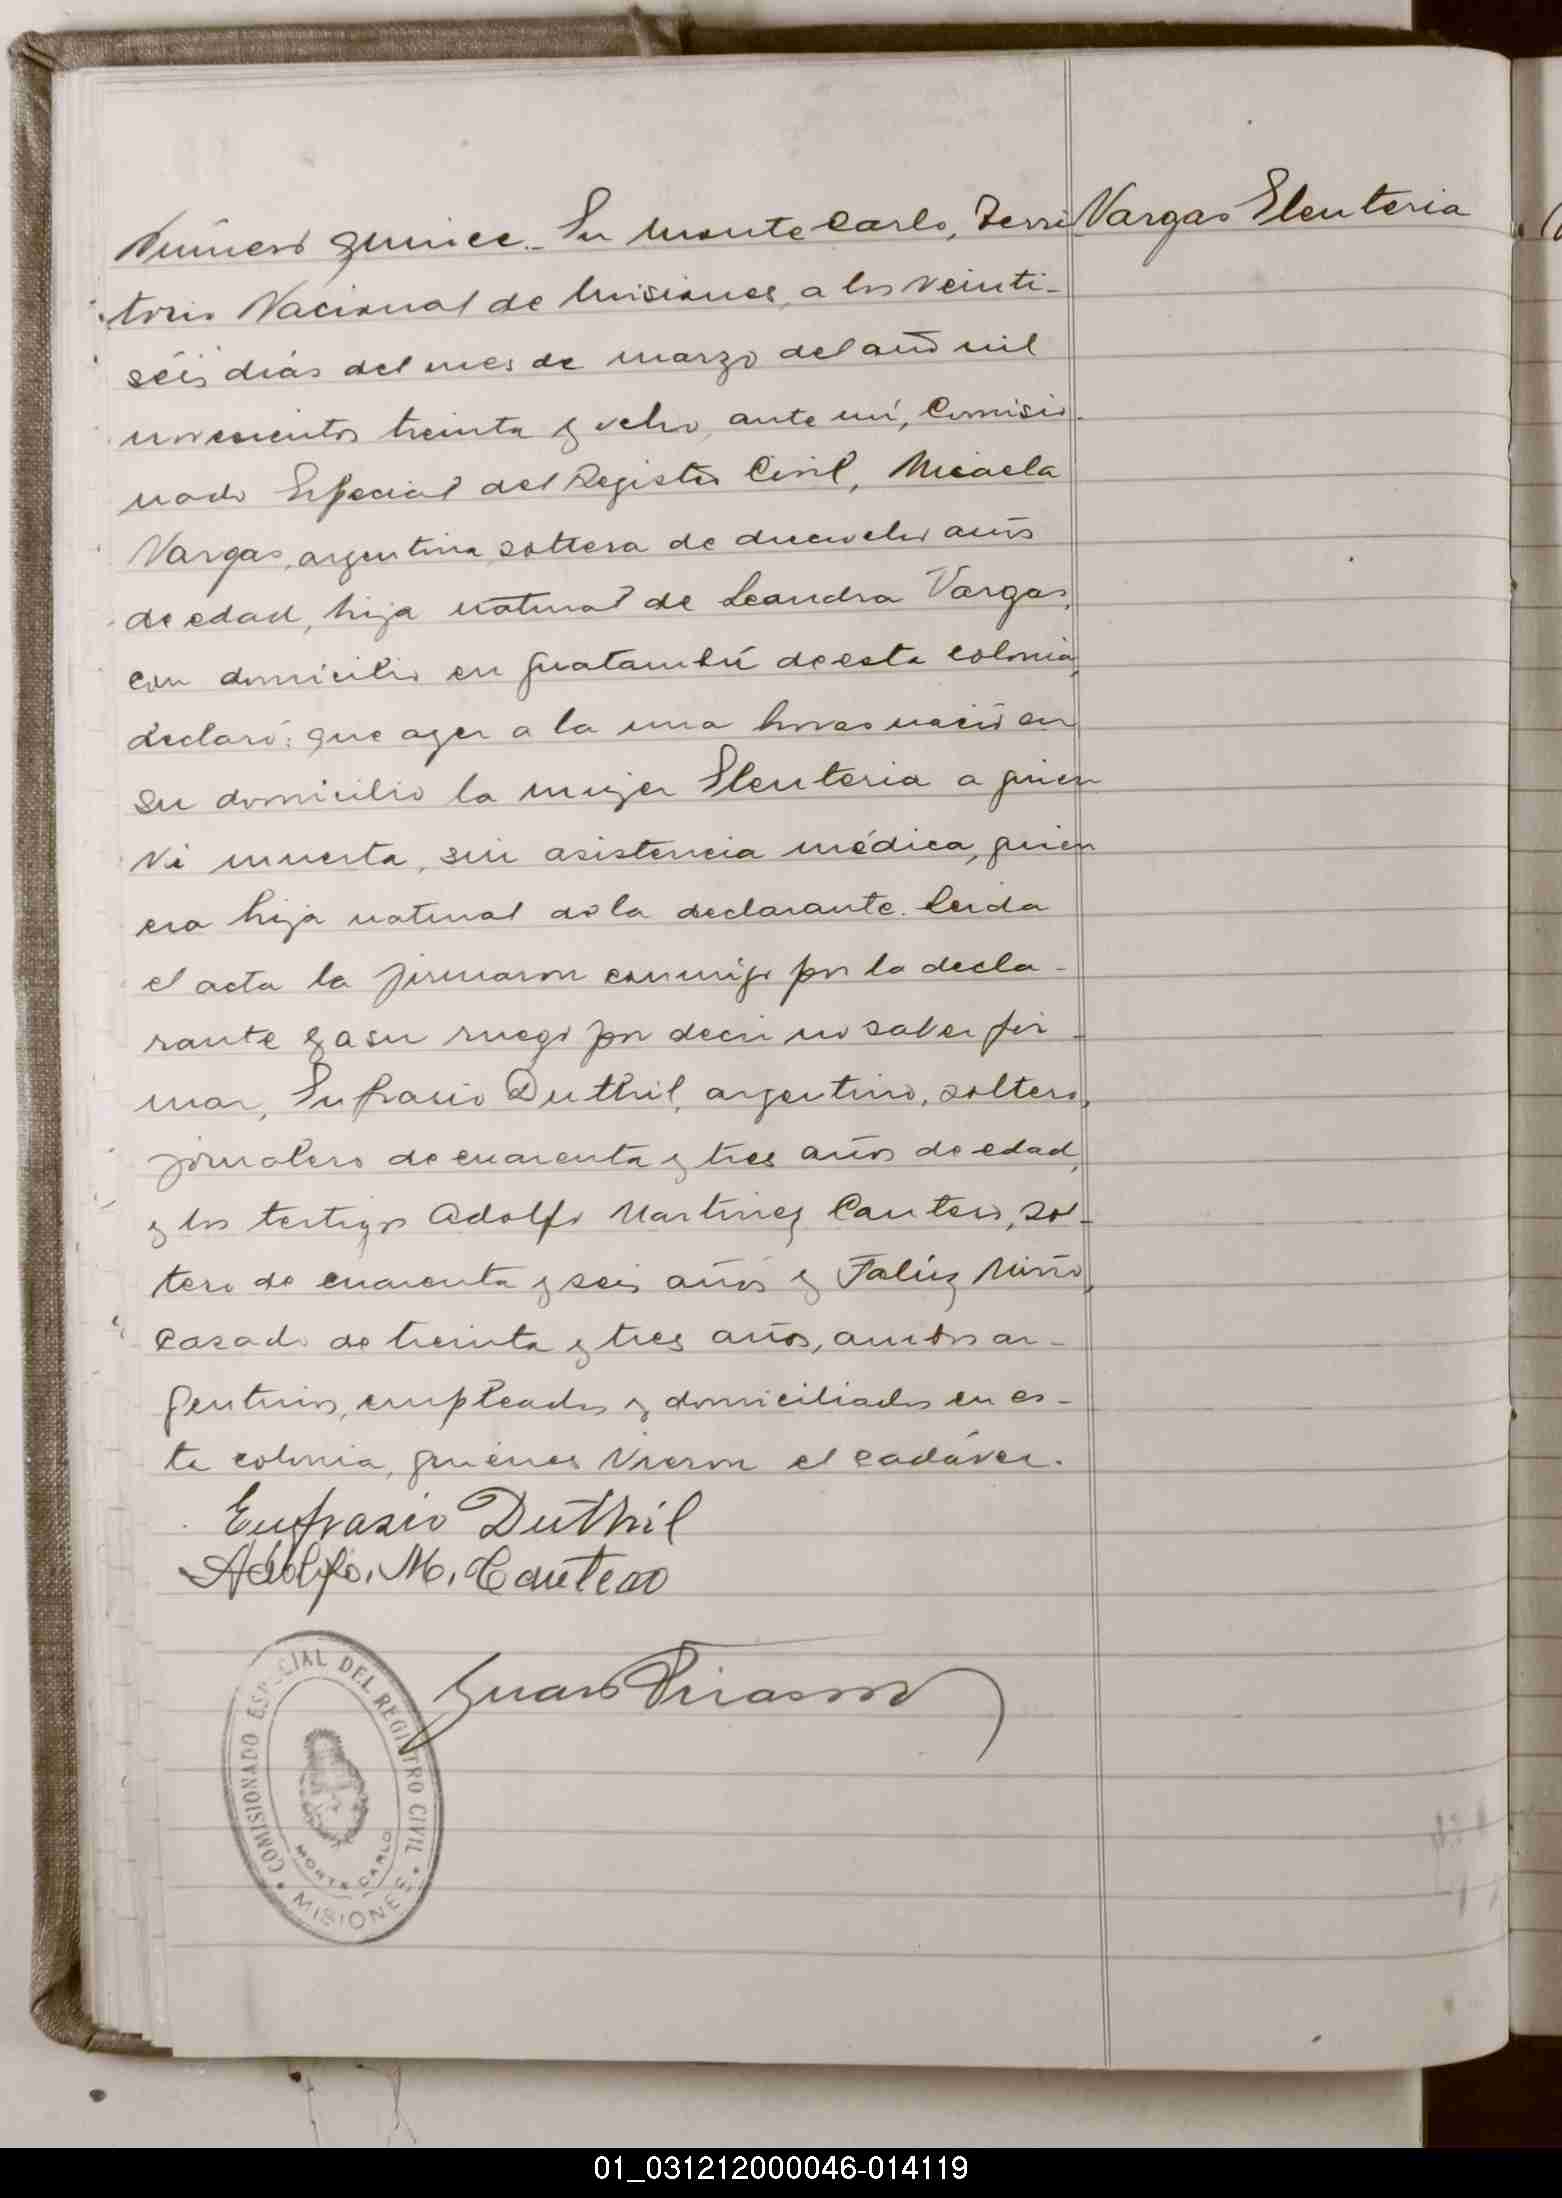 Número quince.- En Monte Carlo, Terri
Vargas Eleuteria
torio Nacional de Misiones, a los veinti-
séis días del mes de marzo del año mil
novecientos treinta y ocho, ante mí, Comisio-
nado Especial del Registro Civil, Micaela
Vargas, argentina, soltera de dieciocho años
de edad, hija natural de Leandra Vargas,
con domicilio en Guatambú de esta colonia,
declaró: que ayer a la una horas nació en
su domicilio la mujer Eleuteria a quien
vi muerta, sin asistencia médica, quien
era hija natural de la declarante. Leida
el acta la firmaron conmigo por la decla-
rante y a su ruego por decir no saber fir-
mar, Eufrasio Duthil, argentino, soltero,
jornalero de cuarenta y tres años de edad,
y los testigos Adolfo Martinez Cantero, sol-
tero de cuarenta y seis años y Féliz Miño,
casado de treinta y tres años, ambos ar-
gentinos, empleados y domiciliados en es-
ta colonia, quienes vieron el cadáver.
Eufrasio Duthil
Adolfo. M. Cantero
Juan
COMISIONADO ESPECIAL DEL REGISTRO CIVIL
MONTE CARLO
MISIONES
01_031212000046-014119